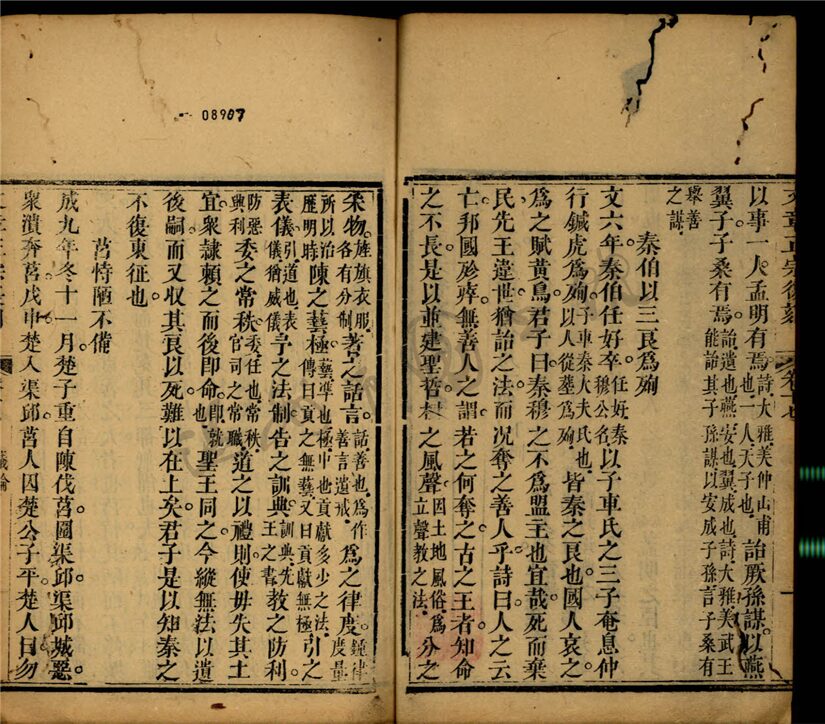 以事一人孟明有焉詩大雅美仲山甫也一人天子也詒厥孫謀以燕
翼子子桑有焉詒遺也燕安也翼成也詩大雅美武王能詒其子孫謀以安成子孫言子桑有
舉善之謀
秦伯以三良爲殉
文六年秦伯任好卒任好秦穆公名以子車氏之三子奄息仲
行鍼虎爲殉子車秦大夫氏也以人從葬爲殉皆秦之良也國人哀之
爲之賦黃鳥君子曰秦穆之不爲盟主也宜哉死而棄
民先王違世猶詒之法而况奪之善人乎詩曰人之云
亡邦國殄瘁無善人之謂若之何奪之古之王者知命
之不長是以並建聖哲之風聲因土地風俗爲立聲教之法分之
08907
采物旌旗衣服各有分制著之話言話善也爲作善言遺戒爲之律度鐘律度量
所以治歷明時陳之藝極藝準也極中也貢獻多少之法傳曰貢之無藝又曰貢獻無極引之
表儀引道也表儀猶威儀予之法制告之訓典訓典先王之書教之防利
防惡興利委之常秩委任也常秩官司之常職道之以禮則使毋失其土
宜衆隸賴之而後即命即就也聖王同之今縱無法以遺
後嗣而又収其良以死難以在上矣君子是以知秦之
不復東征也
莒恃陋不備
成九年冬十一月楚子重自陳伐莒圍渠邱渠邱城惡
衆潰奔莒戊申楚入渠邱莒人囚楚公子平楚人曰勿